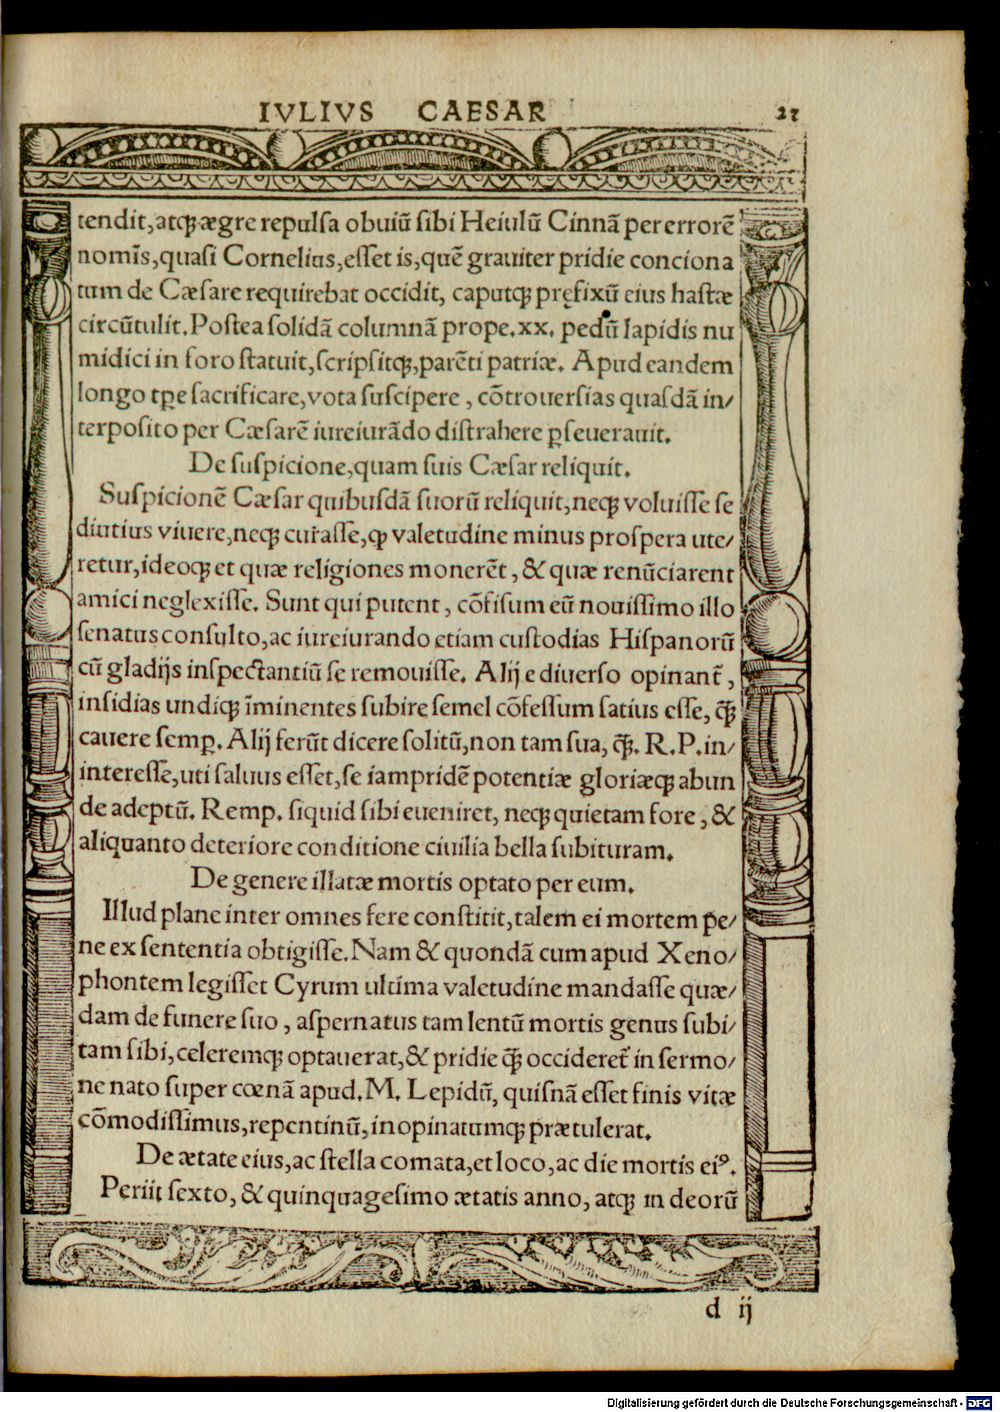 IVLIVS CAESAR 27
tendit,atqꝫ ægre repulſa obuiũ ſibi Heiulũ Cinnã per errorẽ
nomĩs,quaſi Cornelius,eſſet is,quẽ grauiter pridie conciona
tum de Cæſare requirebat occidit, caputqꝫ pręfixũ eius haſtæ
circũtulit.Poſtea ſolidã columnã prope.xx. pedũ lapidis nu
midici in foro ſtatuit,ſcripſitqꝫ,parẽti patriæ. Apud eandem
longo tꝑe ſacrificare,vota ſuſcipere , cõtrouerſias quaſdã in/
terpoſito per Cæſarẽ iureiurãdo diſtrahere ꝑſeuerauit.
De ſuſpicione,quam ſuis Cæſar reliquit.
Suſpicionẽ Cæſar quibuſdã ſuorũ reliquit,neqꝫ voluiſſe ſe
diutius viuere,neqꝫ curaſſe,ꝙ valetudine minus proſpera ute/
retur,ideoqꝫ et quæ religiones monerẽt , & quæ renũciarent
amici neglexiſſe. Sunt qui putent , cõfiſum eũ nouiſſimo illo
ſenatus conſulto,ac iureiurando etiam cuſtodias Hiſpanorũ
cũ gladijs inſpectantiũ ſe remouiſſe. Alij e diuerſo opinant᷑ ,
inſidias undiqꝫ ĩminentes ſubire ſemel cõfeſſum ſatius eſſe, q̃ꝫ
cauere ſemꝑ. Alij ferũt dicere ſolitũ,non tam ſua, q̃ꝫ. R.P.in/
intereſſe,uti ſaluus eſſet,ſe iampridẽ potentiæ gloriæqꝫ abun
de adeptũ. Remp. ſiquid ſibi eueniret, neqꝫ quietam fore , &
aliquanto deteriore conditione ciuilia bella ſubituram.
De genere illatæ mortis optato per eum.
Illud plane inter omnes fere conſtitit,talem ei mortem pe/
ne ex ſententia obtigiſſe.Nam & quondã cum apud Xeno/
phontem legiſſet Cyrum ultima valetudine mandaſſe quæ/
dam de funere ſuo , aſpernatus tam lentũ mortis genus ſubi/
tam ſibi,celeremqꝫ optauerat,& pridie q̃ꝫ occideret᷑ in ſermo/
ne nato ſuper cœnã apud.M. Lepidũ, quiſnã eſſet finis vitæ
cõmodiſſimus,repentinũ,inopinatumqꝫ prætulerat.
De ætate eius,ac ſtella comata,et loco,ac die mortis eiꝰ.
Periit ſexto, & quinquageſimo ætatis anno, atqꝫ in deorũ
d ij
Digitalisierung gefördert durch die Deutsche Forschungsgemeinschaft - DFG